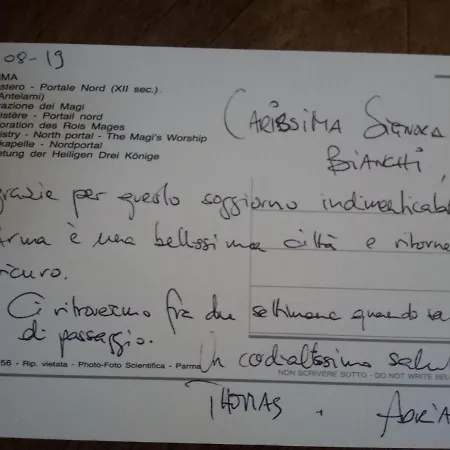 08-19
MA
stero - Portale Nord (XII sec.)
Antelami)
azione dei Magi
istère - Portail nord
oration des Rois Mages
istry - North portal - The Magi's Worship
kapelle - Nordportal
etung der Heiligen Drei Könige
CARISSIMA SIGNORA
BIANCHI,
grazie per questo soggiorno indimenticab
arma è una bellissima città e ritorne
sicuro.
Ci ritroveremo fra due settimane quando sa
di passaggio.
Un cordialissimo salu
56 - Rip. vietata - Photo-Foto Scientifica - Parma
NON SCRIVERE SOTTO - DO NOT WRITE BEL
THOMAS + ADRIA